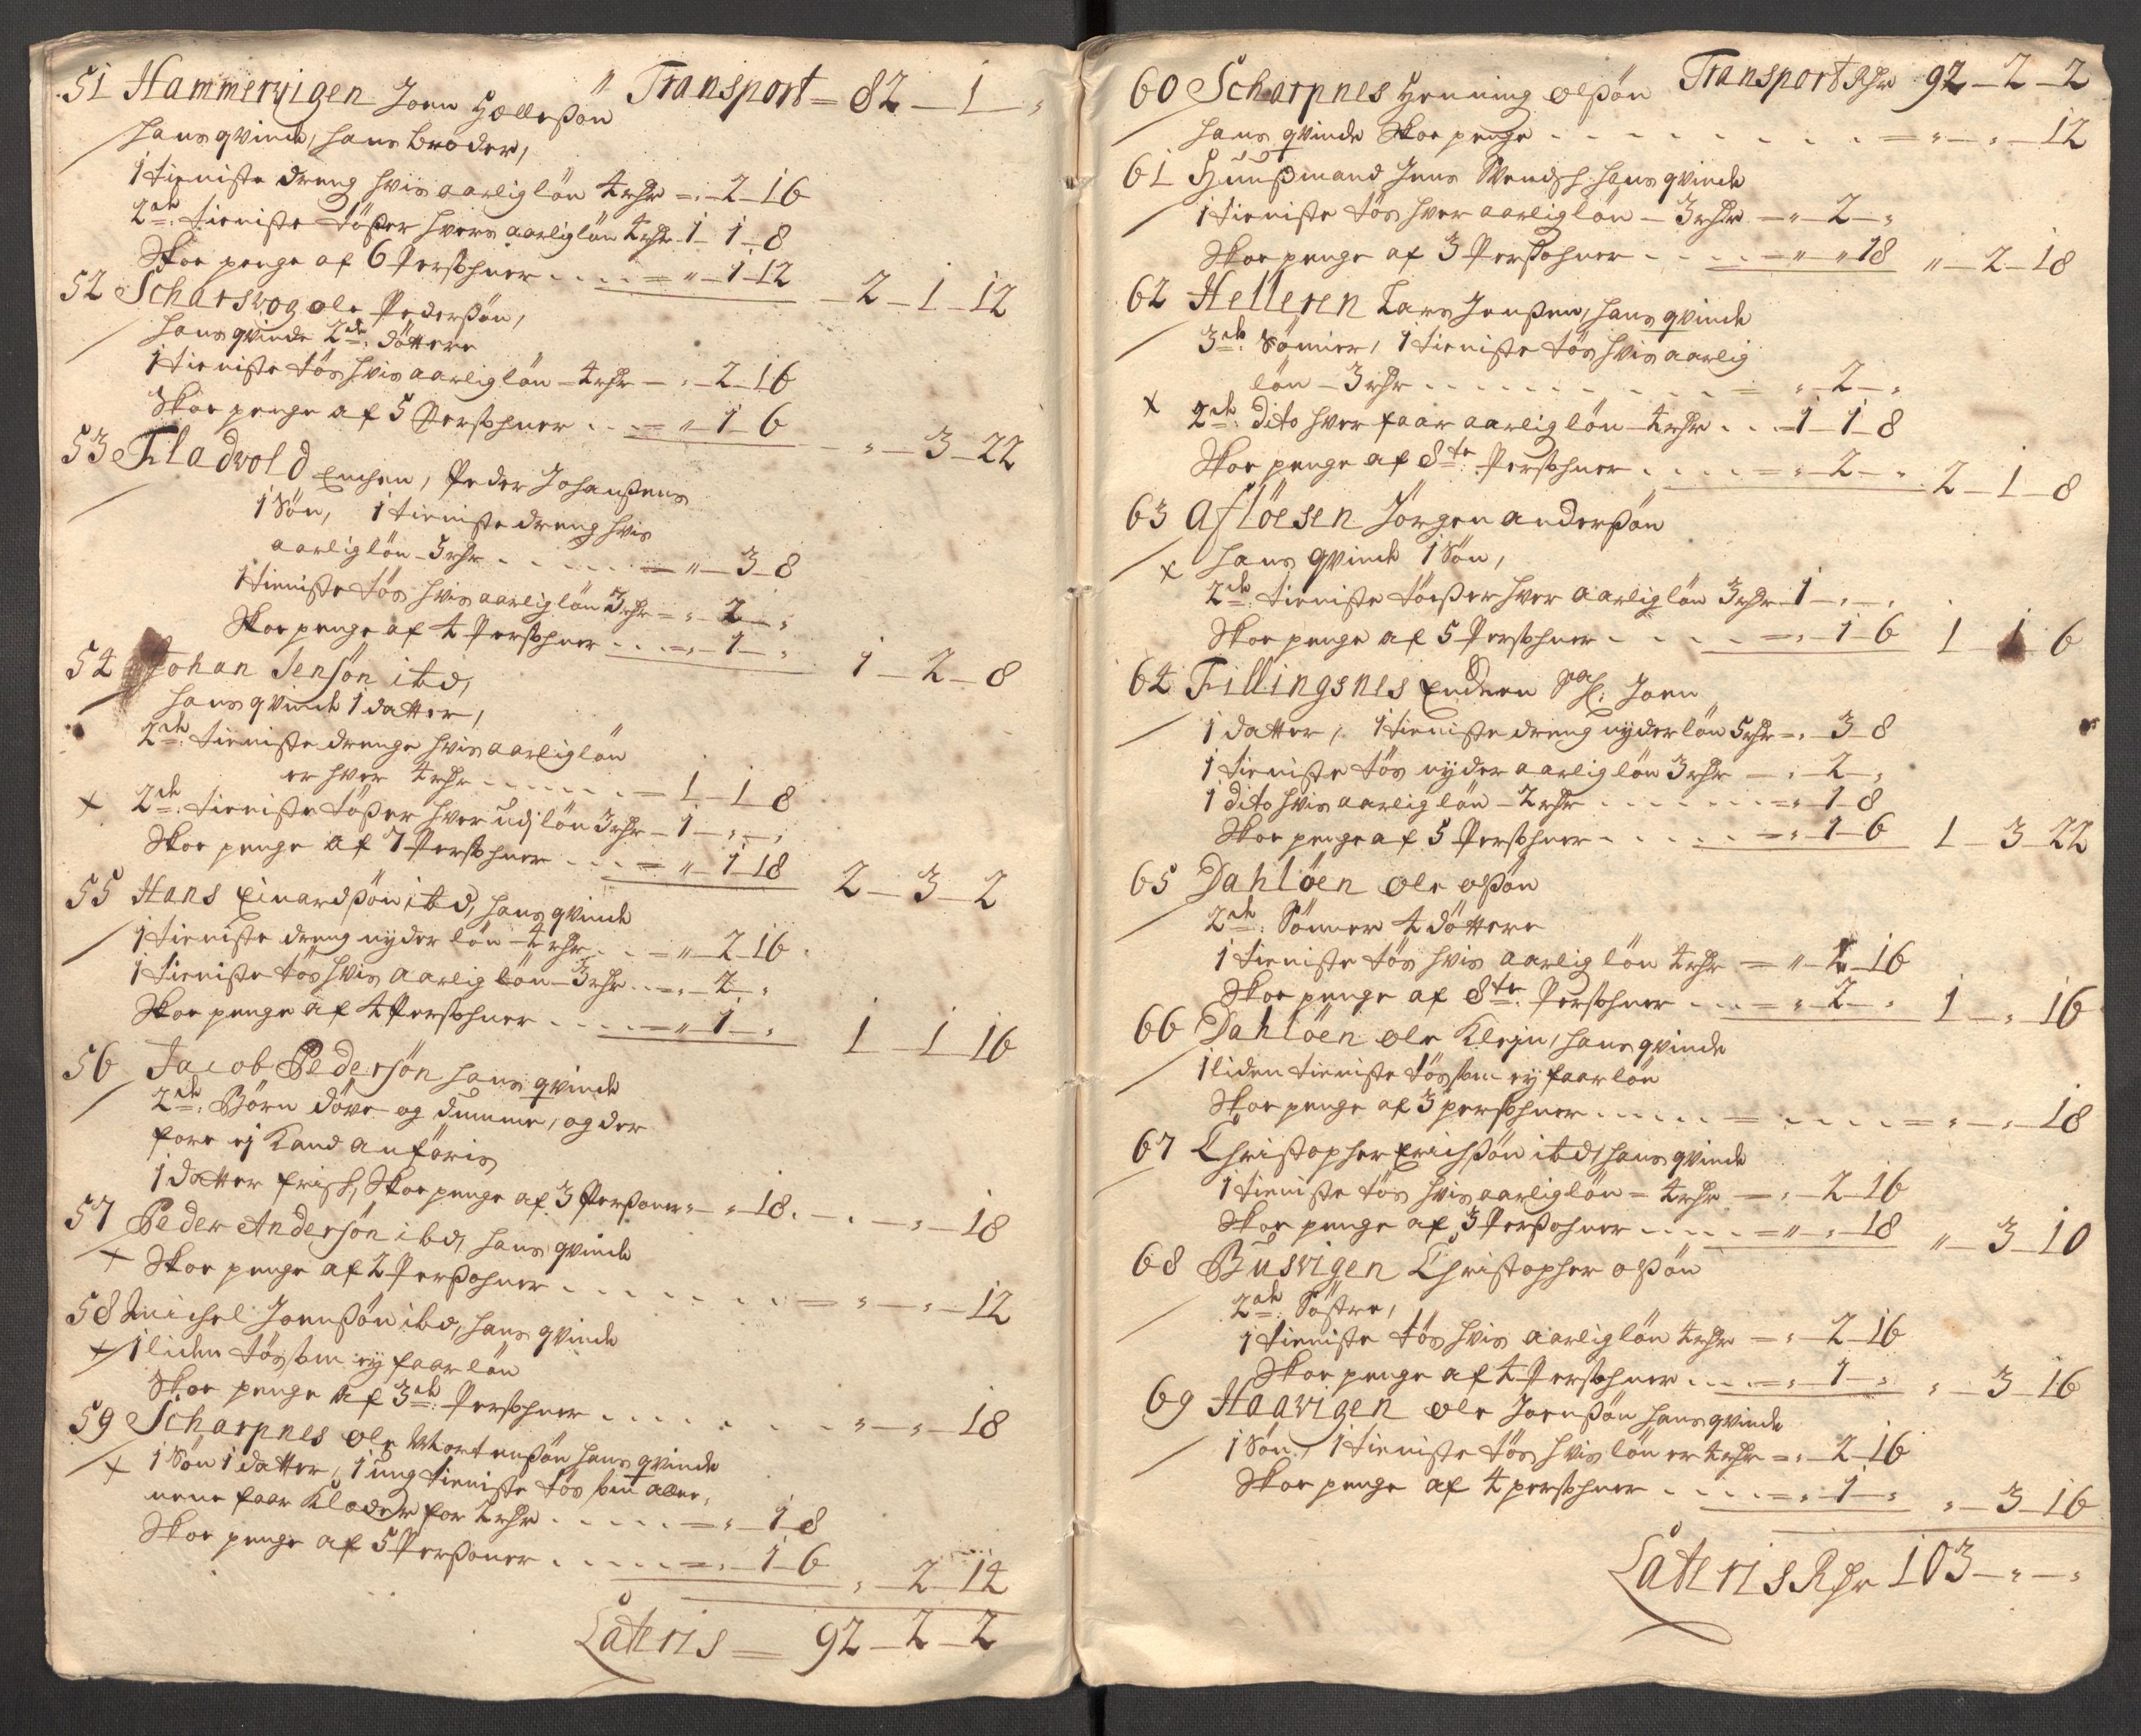 " Transport = 82 _ 1 _ "
51 Hammervigen Joen Hælleßøn
hans qvinde, hans broder,
1 tieniste dreng hvis aarlig løn 4 rdr = " _ 2 _ 16
2de: tieniste tøßer hvers aarlig løn 4 rdr 1 _ 1 _ 8
Skoe penge af 6 Persohner . . . . = " _ 1 _ 12 _ 2 _ 1 _ 12
52 Scharsvog ole Pederßøn,
hans qvinde 2de: døttere
1 tieniste tøs hvis aarlig løn _ 4 rdr _ " _ 2 _ 16
Skoe penge af 5 Persohner . . . = " 1 _ 6 " _ 3 _ 22
53 Fladvold Enchen, Peder Johanßens
1 Søn, 1 tieniste dreng hvis
aarlig løn _ 5 rdr . . . . . . = " _ 3 _ 8
1 tieniste tøs hvis aarlig løn 3 rdr = " _ 2 _ "
Skoe penge af 4 Persohner . . . = " _ 1 _ " 1 _ 2 _ 8
54 Johan Jensøn ibd,
hans qvinde 1 datter,
2de: tieniste drenge hvis aarlig løn
er hver 4 rdr . . . . . . = 1 _ 1 _ 8
x 2de: tieniste tøßer hver udj løn 3 rdr _ 1 _ " _ "
Skoe penge af 7 Persohner . . . = " _ 1 _ 18 2 _ 3 _ 2
55 Hans Einardßøn ibd, hans qvinde
1 tieniste dreng nyder løn _ 4 rdr . . = " _ 2 _ 16
1 tieniste tøs hvis aarlig løn _ 3 rdr . . = " _ 2 _ "
Skoe penge af 4 Persohner . . . . = " _ 1 _ " 1 _ 1 _ 16
56 Jacob Pedersøn hans qvinde
2de: Børn døve og dumme, og der
fore ej Kand anføris
1 datter frisk, Skoe penge af 3 Personer " _ " 18 . _ . _ " _ 18
57 Peder Andersøn ibd, hans qvinde
x Skoe penge af 2 Perßohner . . . . . . . = " _ " _ 12
58 Michel Joenßøn ibd, hans qvinde
x 1 liden tøs som ey faar løn
Skoe penge af 3de: Persohner . . . . . . . " _ " _ 18
59 Scharpnes ole Mortenßøn hans qvinde
x 1 Søn 1 datter, 1 ung tieniste tøs som alle-
nene faar Klæder for 2 rdr . . . . . = " _ 1 _ 8
Skoe penge af 5 Perßoner . . . . . = " _ 1 _ 6 " _ 2 _ 14
Lateris = 92 _ 2 _ 2
Transport Rdr 92 _ 2 _ 2
60 Scharpnes Henning olßøn
hans qvinde Skoe penge . . . . . . . . . = " _ " _ 12
61 Huußmand Jens Svendsh hans qvinde
1 tieniste tøs hver aarlig løn _ 3 rdr _ " _ 2 _ "
Skoe penge af 3 Perßohner . . . . = " _ " 18 " _ 2 _ 18
62 Helleren Lars Jenßen, hans qvinde
3de: Sønner, 1 tieniste tøs hvis aarlig
løn _ 3 rdr . . . . . . . . . . = " _ 2 _ "
x 2de: dito hver faar aarlig løn _ 4 rdr . . . 1 _ 1 _ 8
Skoe penge af 8te: Persohner . . . . = " _ 2 _ " 2 _ 1 _ 8
63 Afløesen Jørgen anderßøn
x hans qvinde 1 Søn,
2de: tieniste tøeßer hver aarlig løn 3 rdr 1 _ " _ "
Skoe penge af 5 Persohner . . . . = " _ 1 _ 6 1 _ 1 _ 6
64 Fillingsnes Enchen Sal: Joen
1 datter, 1 tieniste dreng nyder løn 5 rdr = " 3 _ 8
1 tieniste tøs nyder aarlig løn 3 rdr _ " _ 2 _ "
1 dito hvis aarlig løn _ 2 rdr . . . . . . . = " 1 _ 8
Skoe penge af 5 Persohner . . . . . = " 1 _ 6 1 _ 3 _ 22
65 Dahløen ole olßøn
2de: Sønner 4 døttere
1 tieniste tøs hvis aarlig løn 4 rdr _ " _ 2 _ 16
Skoe penge af 8te: Persohner . . . = " 2 _ " 1 _ " 16
66 Dahløen ole Klejn, hans qvinde
1 liden tieniste tøs som ey faar løn
Skoe penge af 3 persohner . . . . . = . . . . = " _ " _ 18
67 Christopher Erichßøn ibd, hans qvinde
1 tieniste tøs hvis aarlig løn = 4 rdr _ " _ 2 _ 16
Skoe penge af 3 Perßohner . . . . = " _ " _ 18 " _ 3 _ 10
68 Busvigen Christopher olßøn
2de: Søstre,
1 tieniste tøs hvis aarlig løn 4 rdr _ " _ 2 _ 16
Skoe penge af 4 Persohner . . . . = " 1 _ " " _ 3 _ 16
69 Haavigen ole Joenßøn hans qvinde
1 Søn, 1 tieniste tøs hvis løn er 4 rdr = " _ 2 _ 16
Skoe penge af 4 persohner . . . . = " 1 _ " " _ 3 _ 16
Lateris Rdr 103 _ " _ "